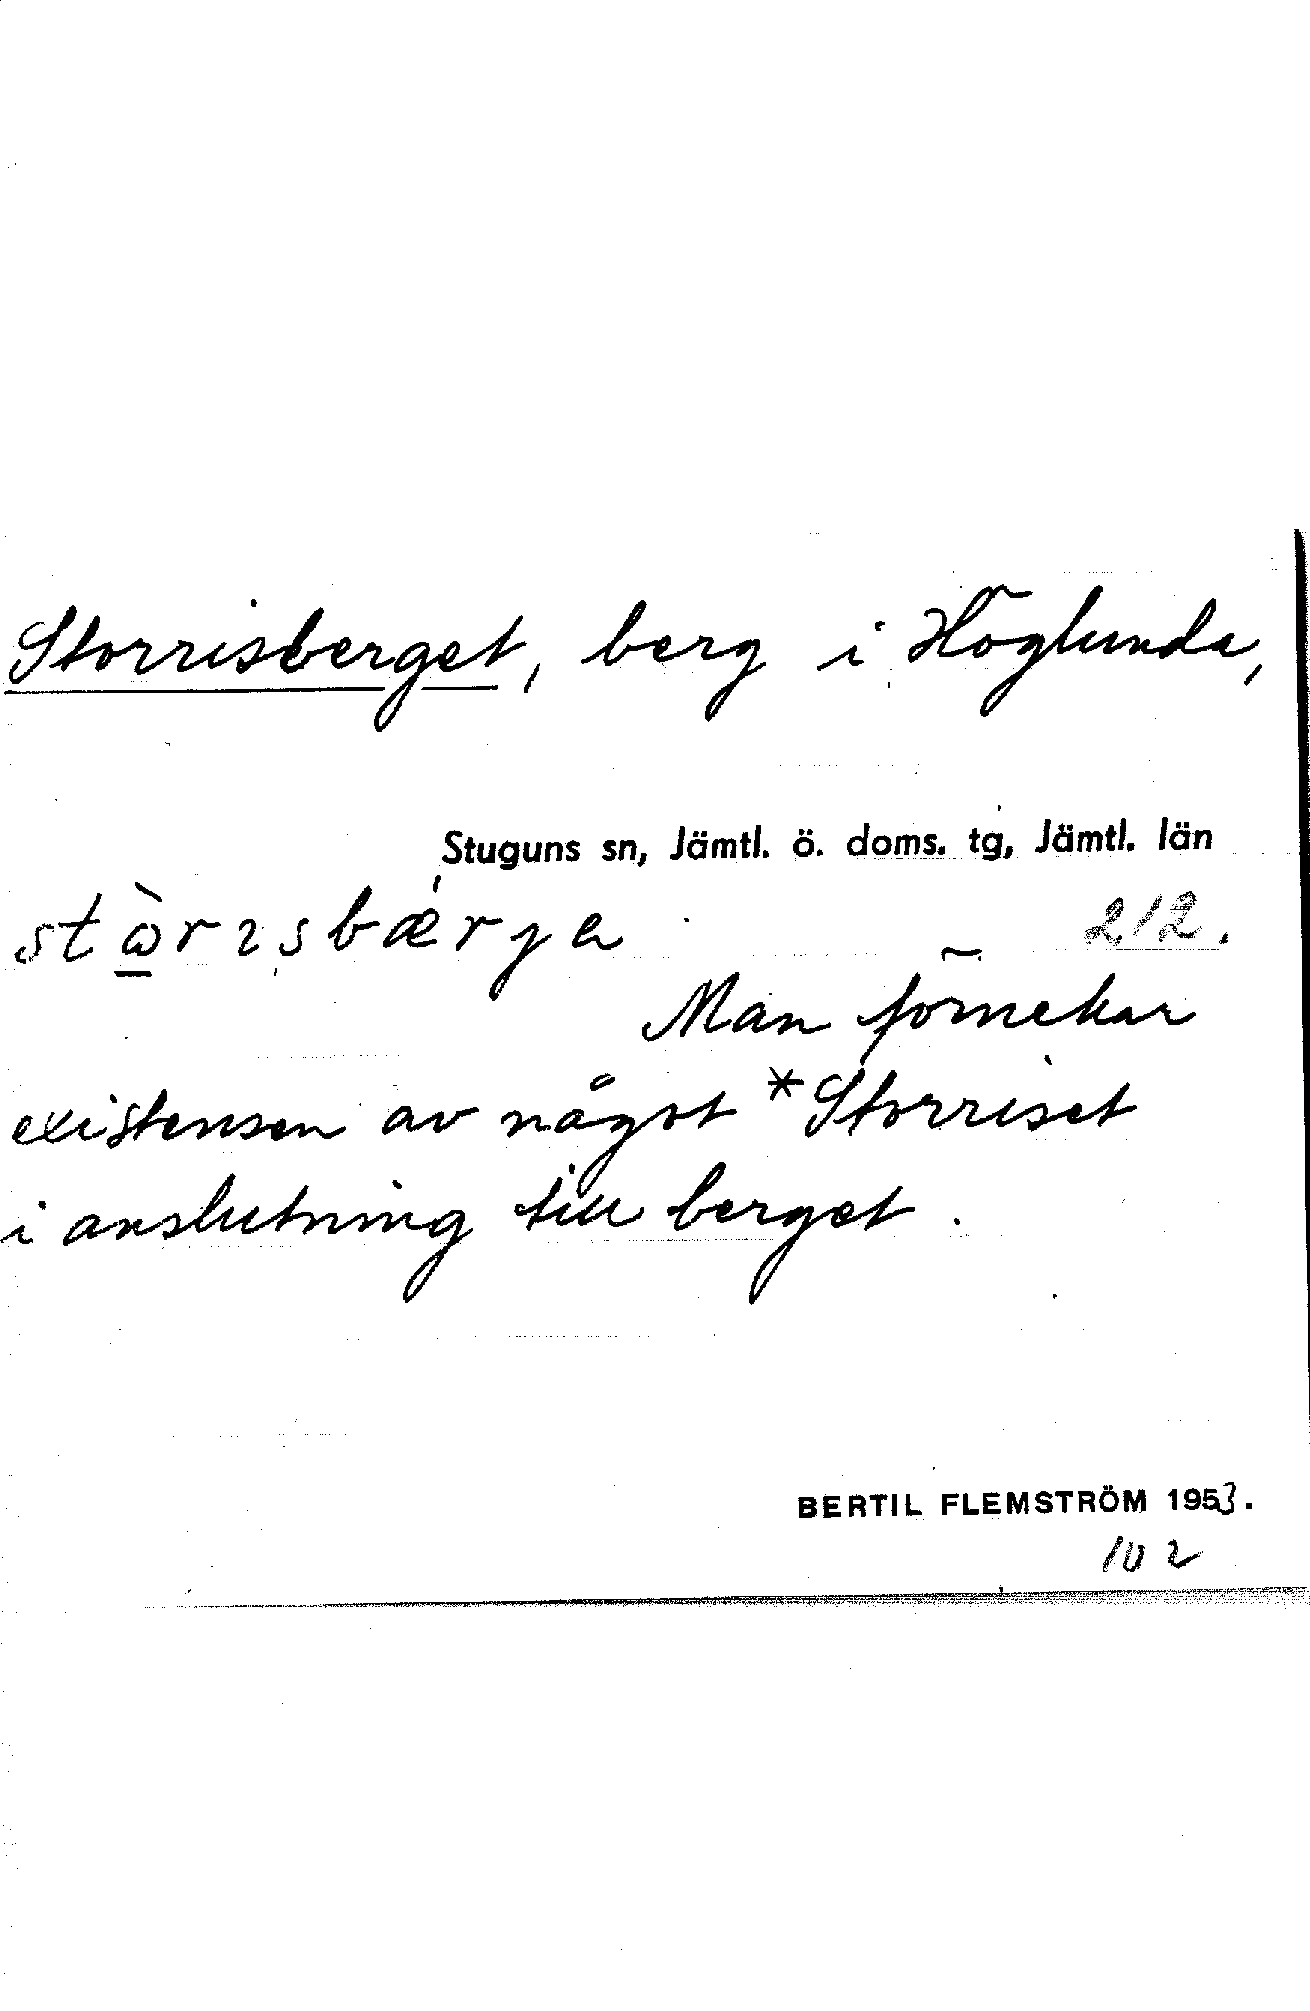 Storrisberget, berg i Höglunda,
Stuguns sn, Jämtl. ö. doms. tg, Jämtl. län
212.
Man förnekar
existensen av något *Storriset
i anslutning till berget.
BERTIL FLEMSTRÖM 1953.
102